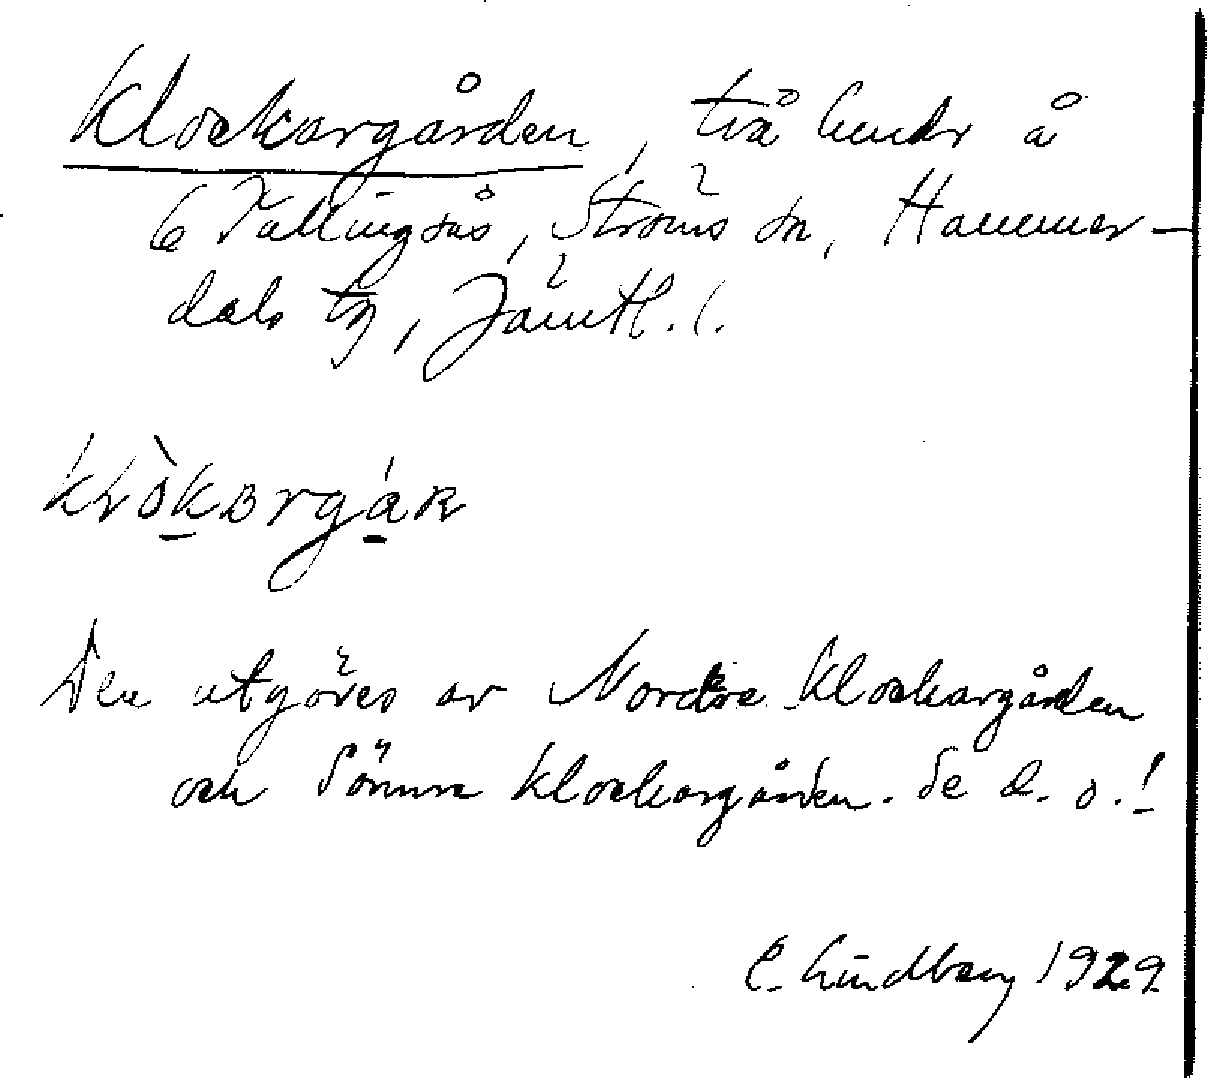 Klockargården, två hmdr å
6 Vallingsås, Ströms sn, Hammer-
dals tg, Jämtl. l.
klòkɒrgáʀ
Den utgöres av Nordre Klockargården
och Sönnre Klockargården. Se d. o.!
E. Lindberg 1929